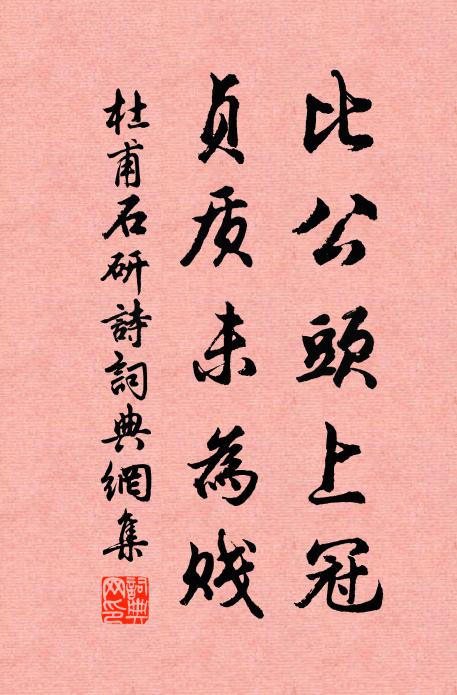 比公頭上冠
貞质未為贱
杜甫石研詩詞典網集
詞典网印